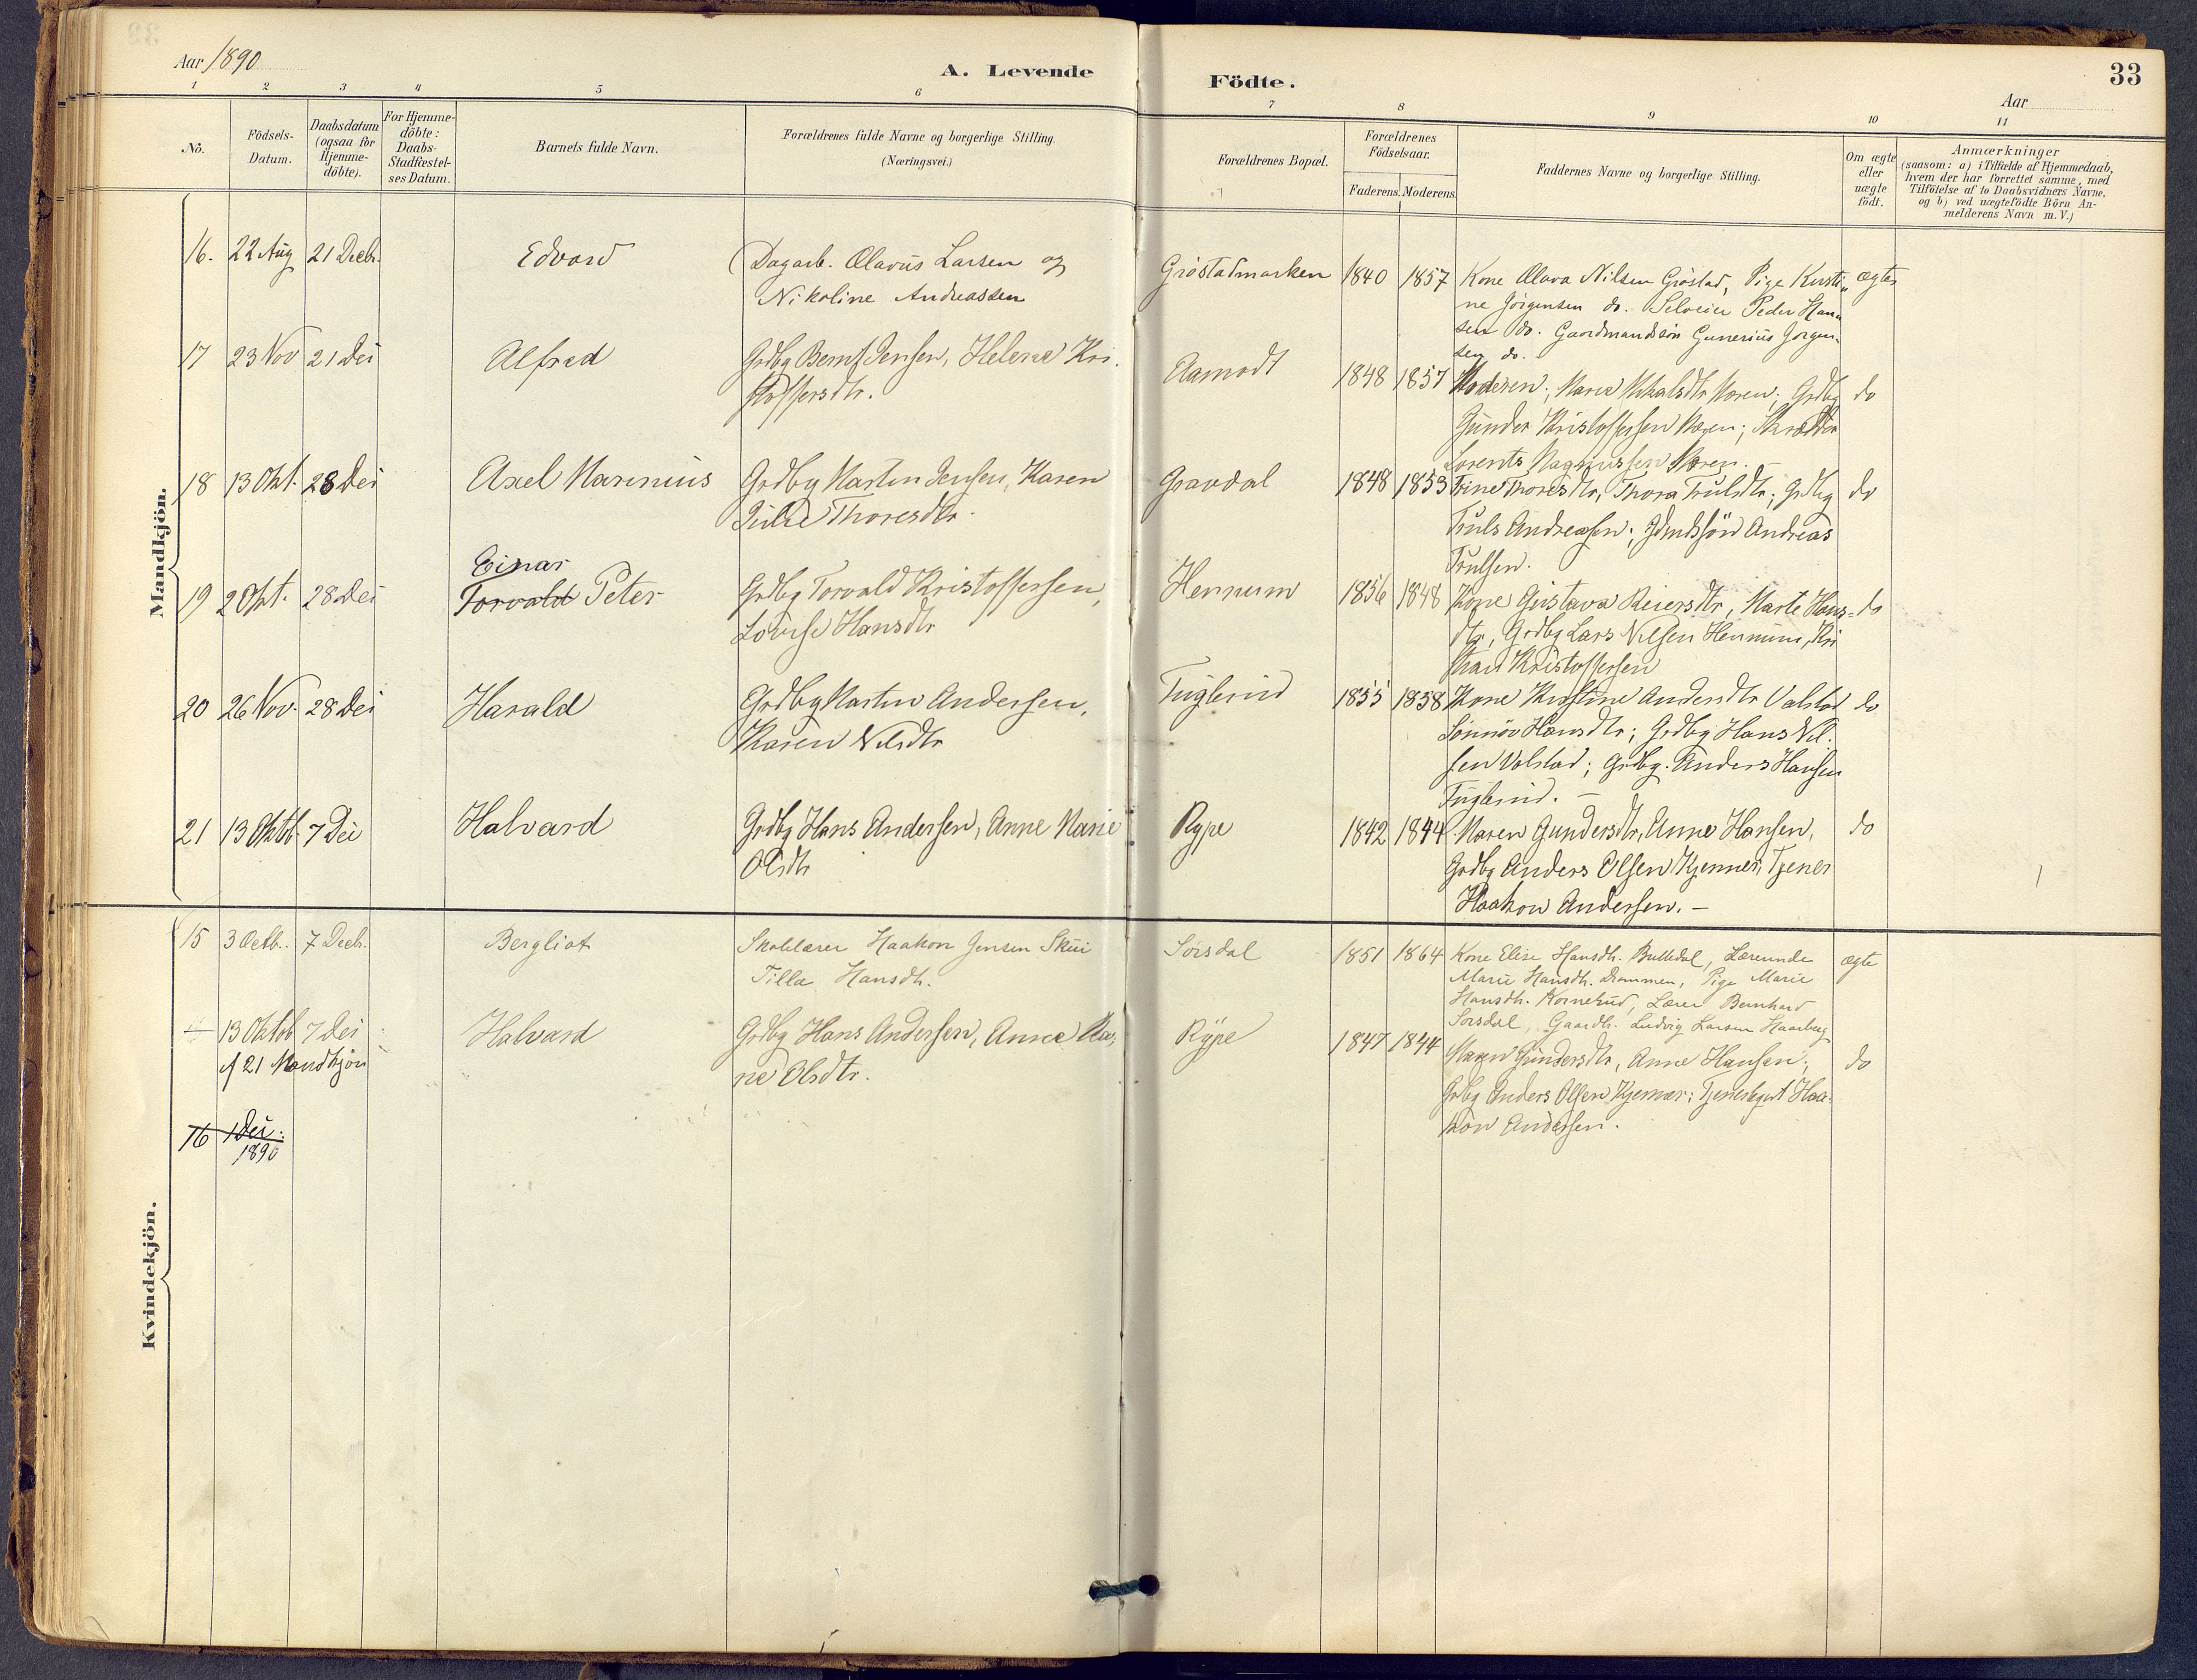 Aar 1890
A. Levende Födte.
33
Aar
1 2 3 4 5 6 7 8 9 10 11
No.
Födsels-Datum.
Daabsdatum (ogsaa for Hjemme-döbte).
For Hjemme-döbte: Daabs-Stadfæstel-ses Datum.
Barnets fulde Navn.
Forældrenes fulde Navne og borgerlige Stilling.
(Næringsvei.)
Forældrenes Bopæl.
Forældrenes Födselsaar.
Faderens. Moderens.
Faddernes Navne og borgerlige Stilling.
Om ægte eller uægte födt.
Anmærkninger
(saasom: a) i Tilfælde af Hjemmedaab,
hvem der har forrettet samme, med
Tilföielse af to Daabsvidners Navne,
og b) ved uægtefödte Börn An-
melderens Navn m.V.)
Mandkjön.
16. 22 Aug 21 Decb. Edvard Dagarb. Olavus Larsen og Gröstadmarken 1840 1857 Kone Olava Nilsen Gröstad, Pige Kirsti- ægte
Nikoline Andreassen
ne Jörgensen do. Selveier Peder Han-
sen do. Gaardmandssön Gunerius Jörgen-
sen do.
17 23 Nov 21 Dei Alfred Grdbg Bernt Jensen, Helene Kri- Aamodt 1848 1857 Moderen; Maren Mikalsdtr Moren; Grdbg do
stoffersdtr.
Gunder Kristoffersen Moren; Skrædder
Lorents Magnussen Moren. -
18 13 Okt. 28 Dei Axel Marinius Grdbg Martin Jensen, Karen Gravdal 1848 1853 Trine Thoresdtr, Thora Trulsdtr; Grdbg do
Julie Thoresdtr.
Truls Andreasen; Gdmdssön Andreas
Trulsen.
Einar
19 2 Okt. 28 Dei Torvald Peter Grdbg Torvald Kristoffersen, Hennum 1856 1848 Kone Gustava Reiersdtr, Marte Hans- do
Lovise Hansdtr
dtr, Grdbg Lars Nilsen Hennum, Kri
stian Kristoffersen
20 26 Nov. 28 Dei Harald Grdbg Martin Andersen, Fuglerud 1855 1858 Kone Kristine Andersdtr Valstad do
Karen Nilsdtr
Sönnöv Hansdtr; Grdbg Hans Nil-
sen Valstad; Grdbg. Anders Hansen
Fuglerud. -
21 13 Oktob 7 Dei Halvard Grdbg Hans Andersen, Anne Marie Rype 1842 1844 Maren Gundersdtr, Anne Hansen, do
Olsdtr
Grdbg Anders Olsen Kjenner, Tjener
Haakon Andersen. -
Kvindekjön.
15 3 Octb. 7 Decb. Bergliot Skolelærer Haakon Jensen Skui Sörsdal 1851 1864 Kone Elise Hansdtr. Bulledal, Lærerinde ægte
Tilla Hansdtr.
Marie Hansdtr. Drammen, Pige Marie
Hansdtr. Kornerud, Lærer Bernhard
Sörsdal, Gaardb. Ludvig Larsen Haarberg
13 Oktob 7 Dei Halvard Grdbg Hans Andersen, Anne Ma- Rype 1847 1844 Maren Gundersdtr, Anne Hansen; do
cf 21 Mandkjön
rie Olsdtr.
Grdbg Anders Olsen Kjenner; Tjenestegut Haa-
kon Andersen.
16 1 Dei.
1890